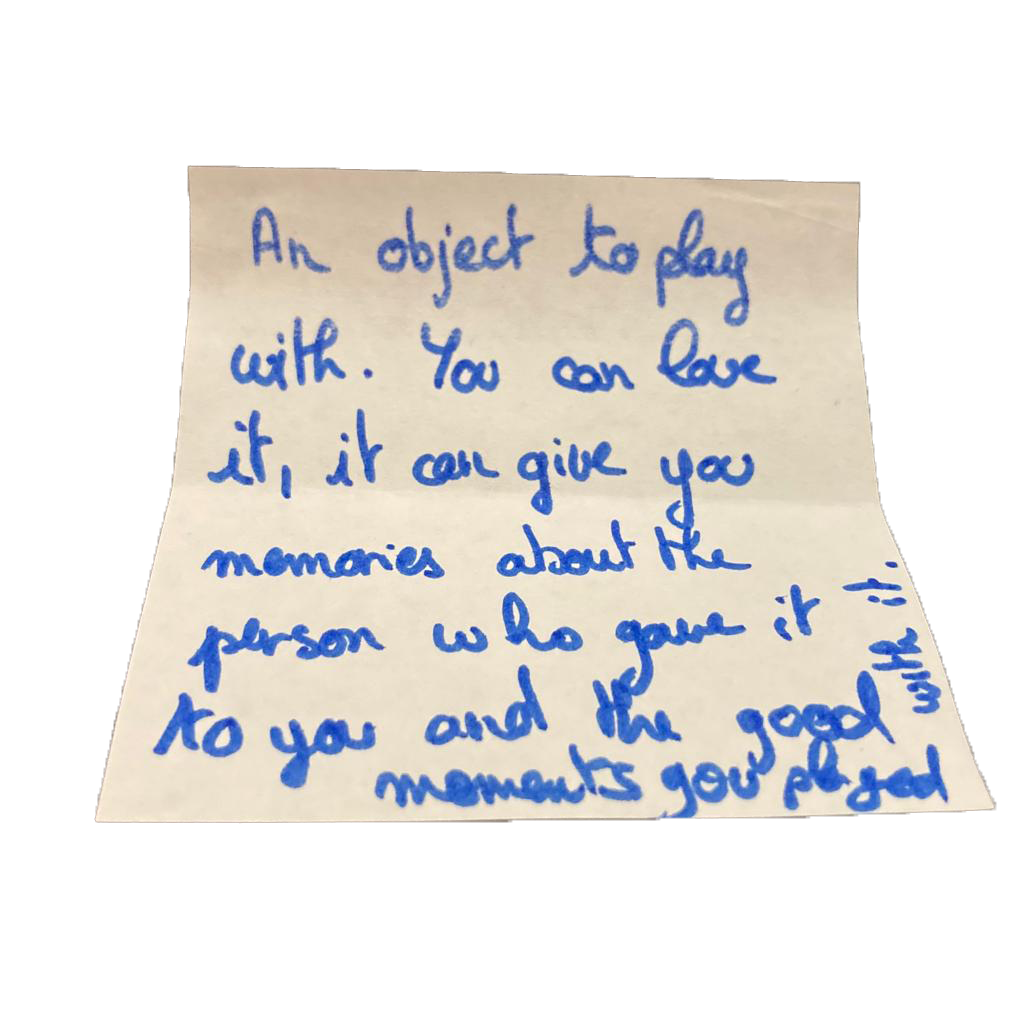 An object to play
with. You can love
it, it can give you
memories about the
person who gave it
to you and the good
moments you played
with it.